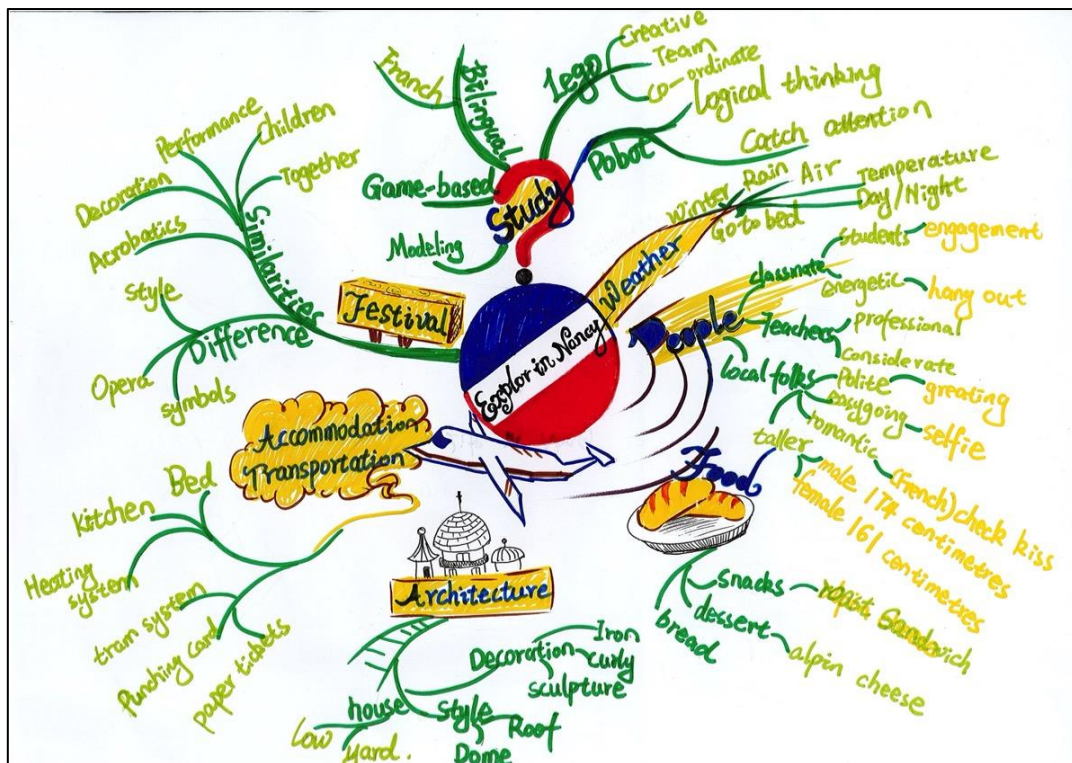 Explor in Nancy
Study
Modeling
Game-based
Bilingual
Franch
Lego
Creative
Team
co-ordinate
Pobot
Logical thinking
Catch attention
Weather
Winter
Rain
Air
Go to bed
Temperature
Day/Night
People
classmate
students
engagement
energetic
hang out
Teachers
professional
considerate
local folks
Polite
greating
easygoing
selfie
romantic
(French) check kiss
taller
male 174 centimetres
female 161 centimetres
Food
snacks
Sandwich
dessert
alpin cheese
bread
Architecture
Decoration
Iron
curly
sculpture
Style
Roof
Dome
house
low
yard.
Accommodation
Transportation
Bed
Kitchen
Heating
system
tram system
Punching card
paper tickets
Festival
Similarities
Together
children
Performance
Decoration
Acrobatics
Difference
Style
Opera
symbols